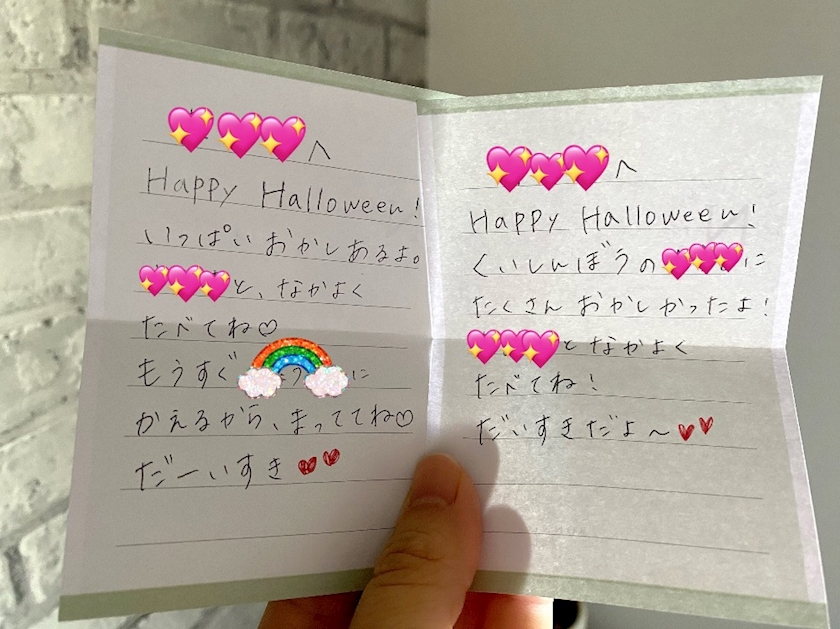 へ
Happy Halloween!
いっぱいおかしあるよ。
と、なかよく
たべてね♡
もうすぐ に
かえるから、まっててね♡
だーいすき
へ
Happy Halloween!
くいしんぼうの に
たくさんおかしかったよ!
となかよく
たべてね!
だいすきだよ〜